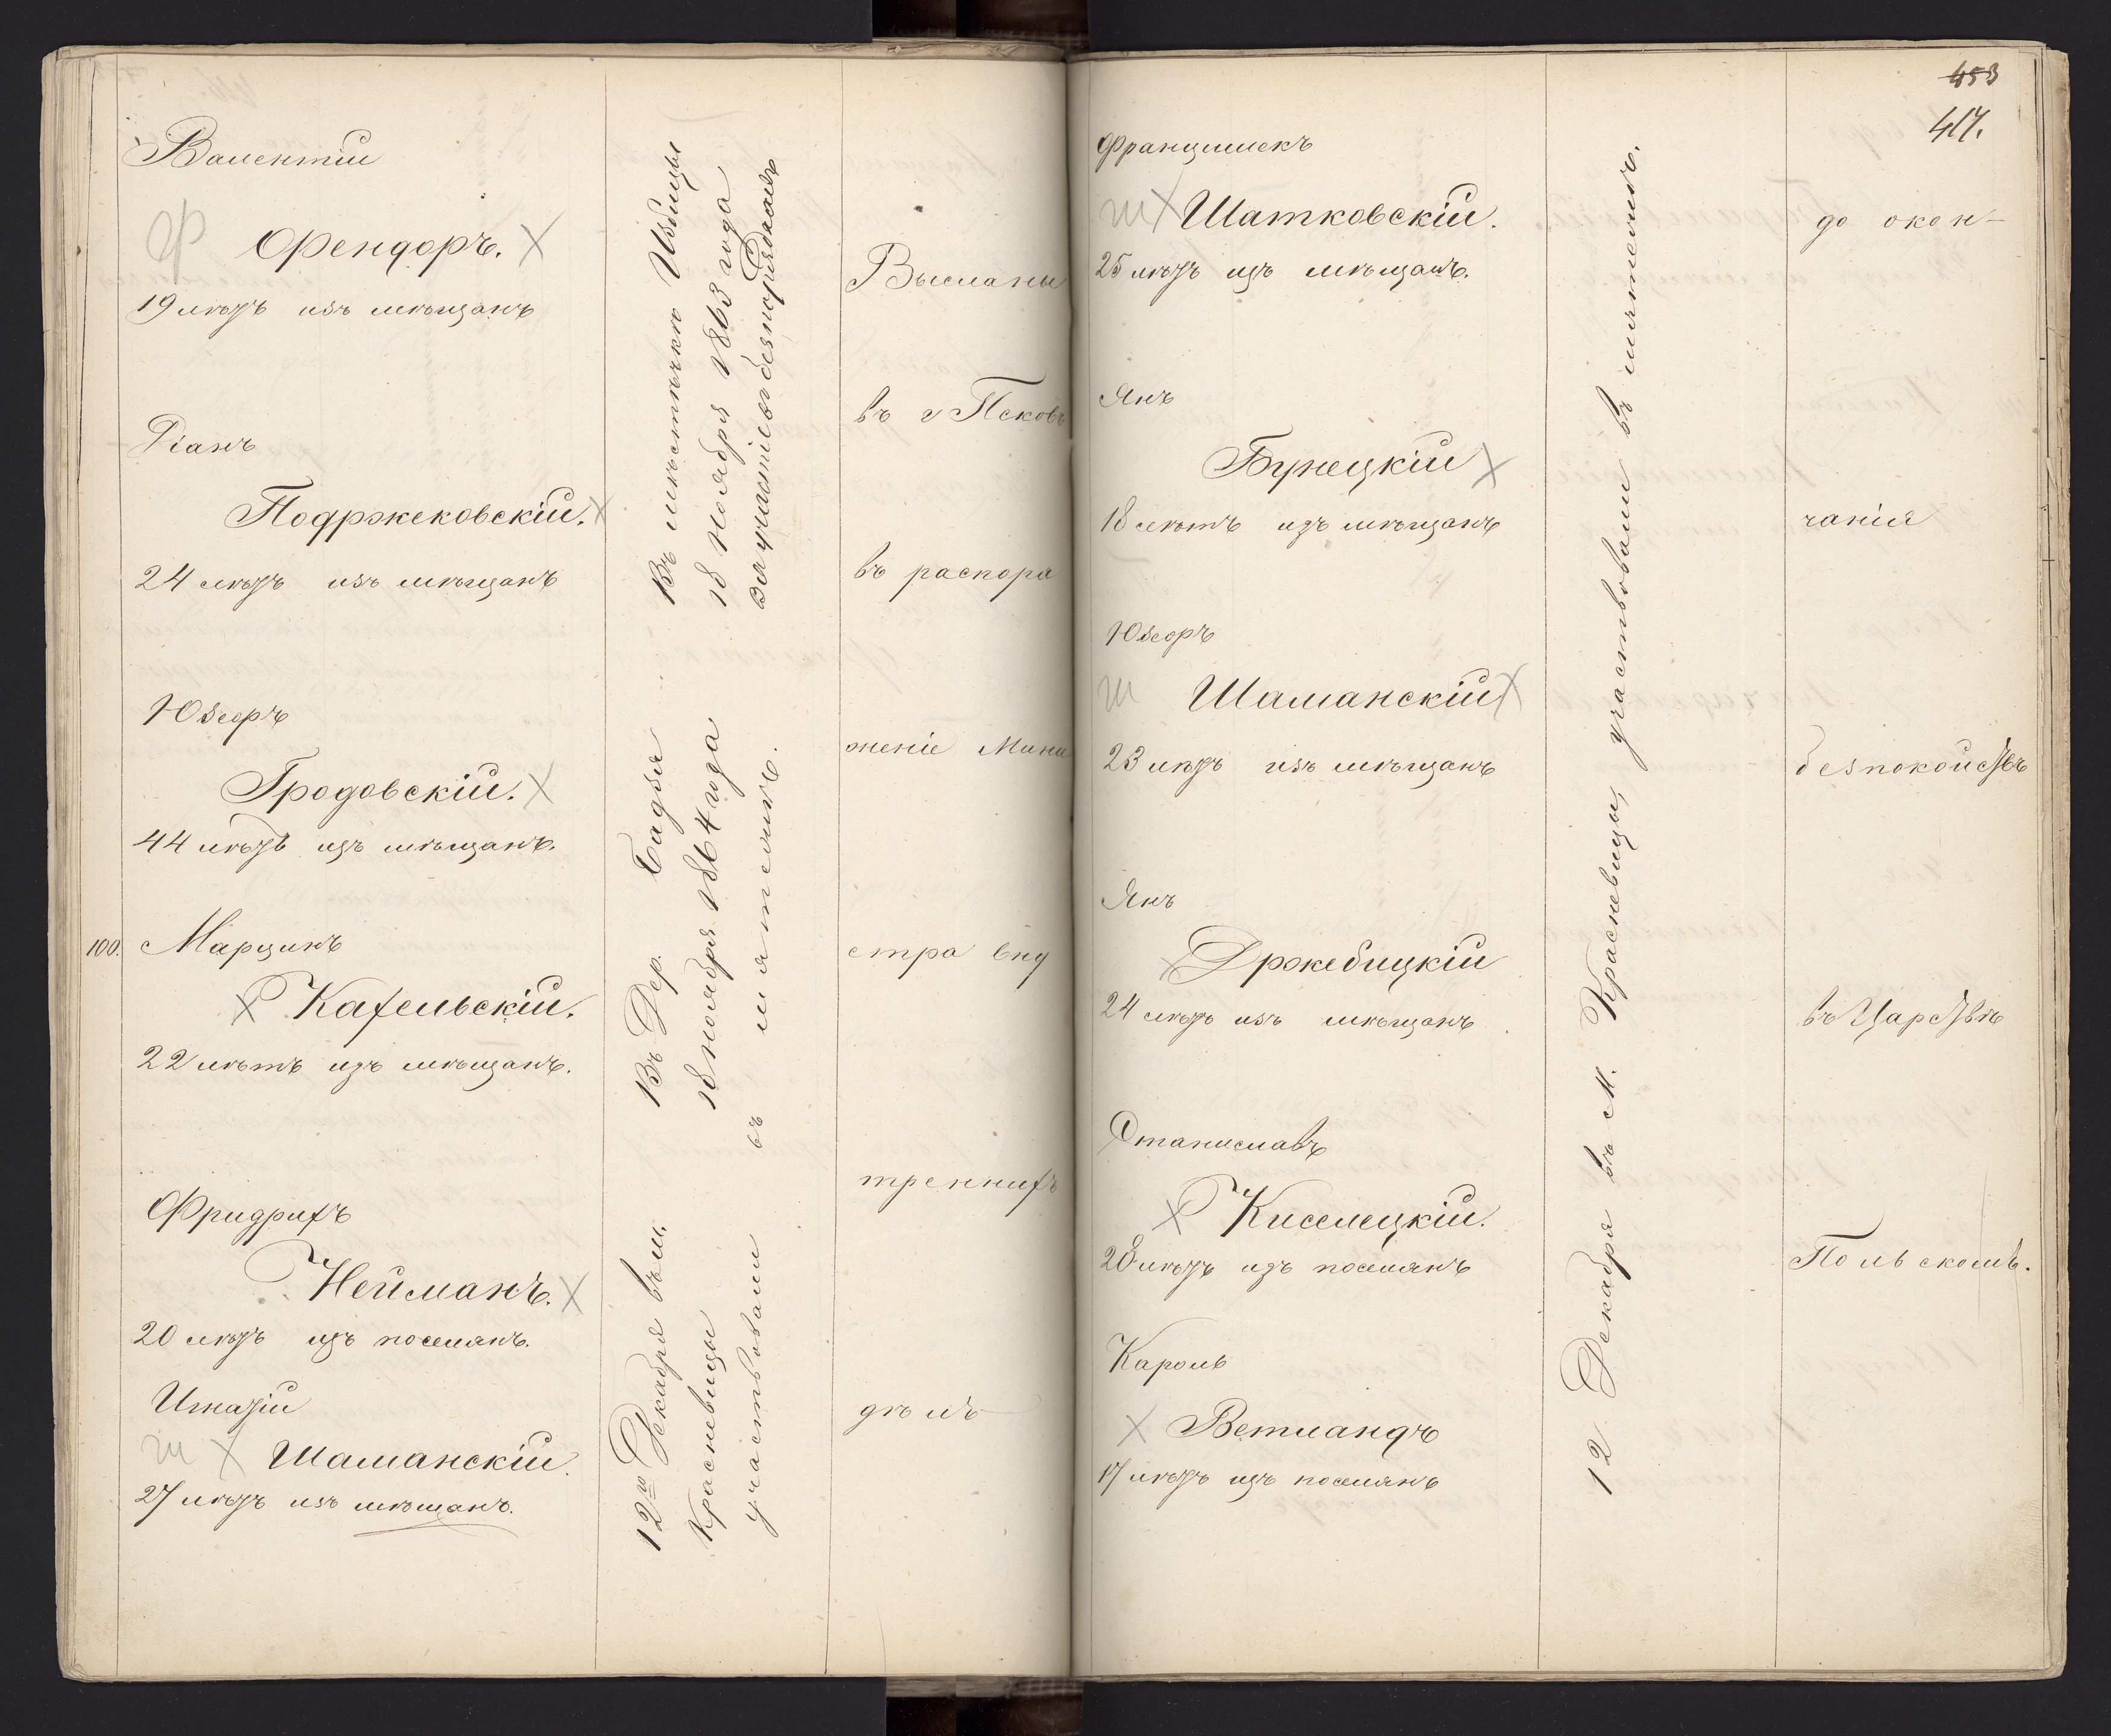 Валентій
Ф Френдоръ. X
19 лѣтъ изъ мѣщанъ
Янъ
Подржековскій. X
24 лѣтъ изъ мѣщанъ
Юзефъ
Гродовскій. X
44 лѣтъ изъ мѣщанъ.
100. Марцинъ
X Кахельскій.
22 лѣтъ изъ мѣщанъ.
Фридрихъ
Нейманъ. X
20 лѣтъ изъ поселянъ.
Игнатій
Ш X Шаманскій.
27 лѣтъ изъ мѣщанъ.
Въ мѣстѣчкѣ Избицы
18 Ноября 1863 года
за участіе въ безпорядкахъ
Въ Дер. Бадзя
18 ноября 1864 года
въ мятежѣ.
12го Декабря въ м.
Красневицы
участвовали
Высланы
въ г Псковъ
въ распоря
женіе Мини
стра Вну
треннихъ
дѣлъ
453
417.
Францишекъ
Ш X Шатковскій.
25 лѣтъ изъ мѣщанъ.
Янъ
Бунецкій X
18 лѣтъ изъ мѣщанъ
Юзефъ
Ш Шаманскій X
23 лѣтъ изъ мѣщанъ
Янъ
X Држебицкій
24 лѣтъ изъ мѣщанъ
Станиславъ
X Киселецкій.
28 лѣтъ изъ поселянъ
Кароль
X Ветландъ
17 лѣтъ изъ поселянъ
12 Декабря въ м. Красневицы, участвовали въ мятежѣ.
до окон-
чанія
безпокойствъ
въ Царствѣ
Польскомъ.